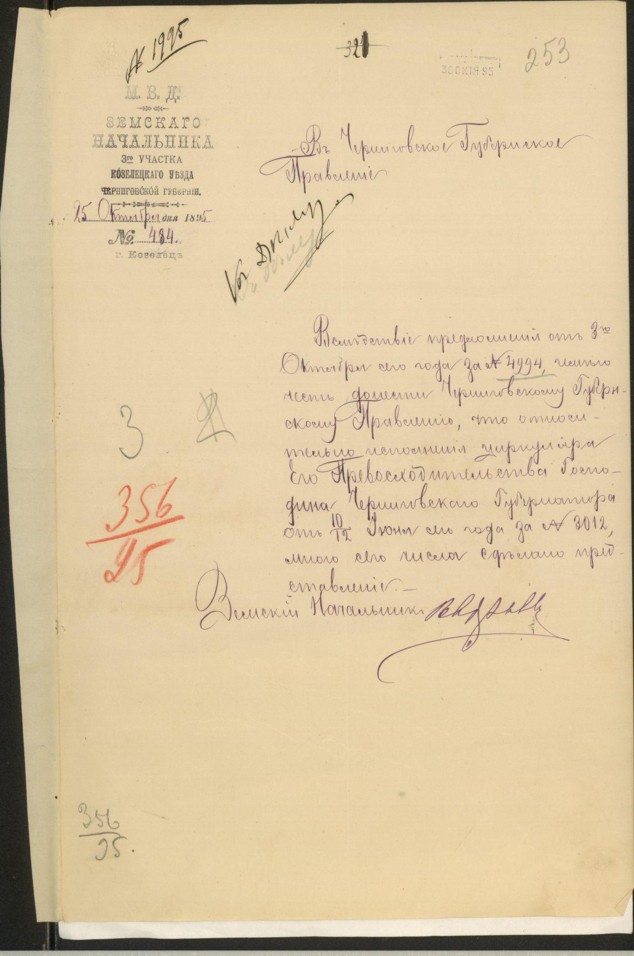 № 1995
321
30 ОКТЯ 95
253
М. В. Д.
ЗЕМСКАГО
НАЧАЛЬНИКА
3го УЧАСТКА
КОЗЕЛЕЦКАГО УѢЗДА
ЧЕРНИГОВСКОЙ ГУБЕРНІИ.
25 Октября дня 1895
№ 484.
г. Козелецъ
Въ Черниговское Губернское
Правленіе
Къ дѣлу
Вслѣдствіе предложенія отъ 3го
Октября сего года за № 4994, имѣю
честь донести Черниговскому Губерн-
скому Правленію, что относи-
тельно исполненія циркуляра
Его Превосходительства Госпо-
дина Черниговскаго Губернатора
отъ 10/12 Іюня сего года за № 3012,
мною сего числа сдѣлано пред-
ставленіе.—
3
356
95
Земскій Начальникъ
356
95.